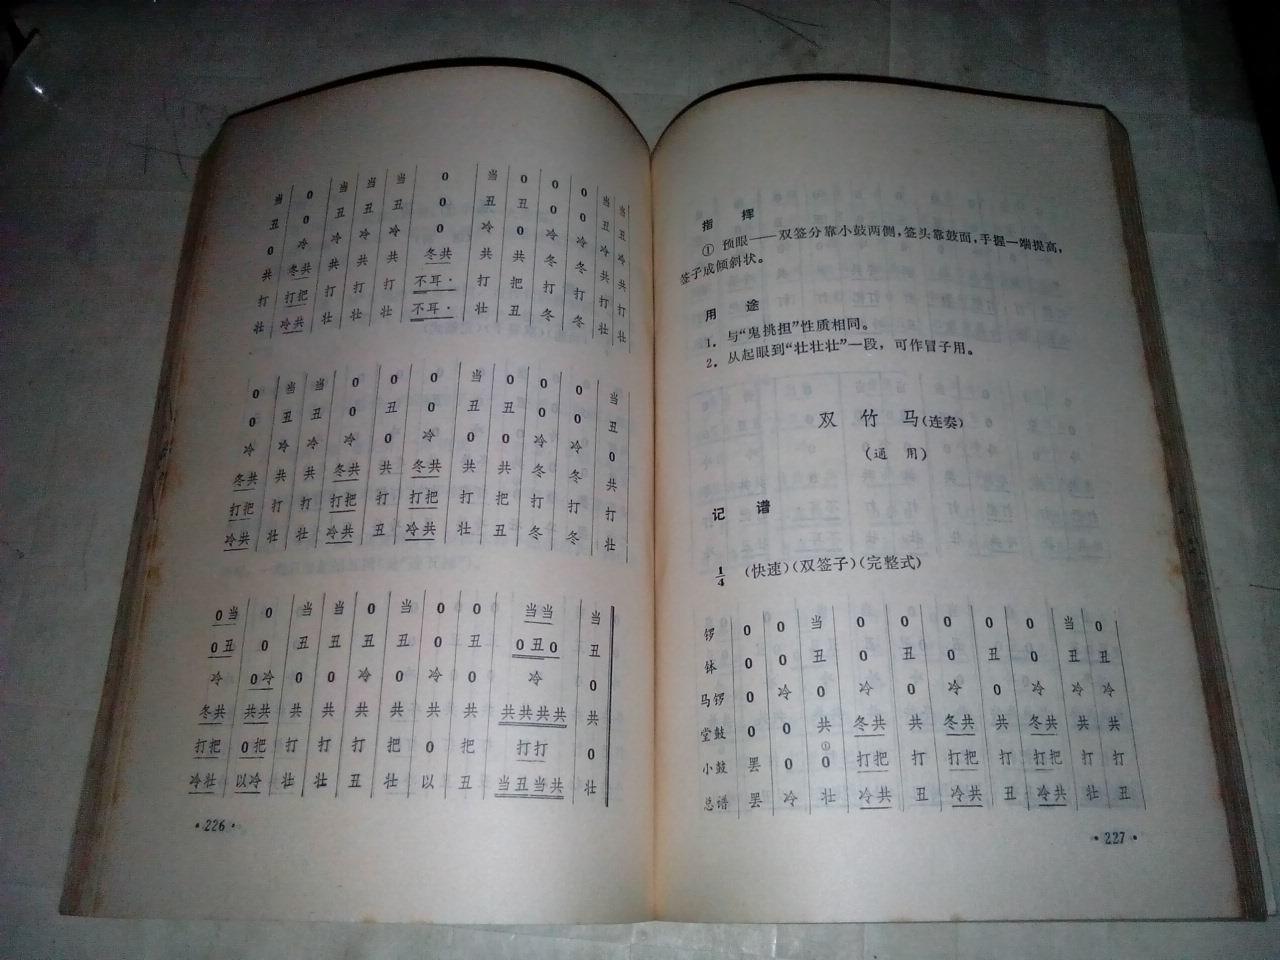 当 0 当 当 当 0 当 0 0 0 当 当
丑 0 丑 丑 丑 0 丑 丑 0 0 丑 丑
0 冷 冷 冷 冷 0 冷 0 冷 冷 冷 冷
共 冬共 共 共 共 冬共 共 共 冬 冬 共 共
打 打把 打 打 打 不耳· 打 把 打 打 打 打
壮 冷共 壮 壮 壮 不耳· 壮 丑 冬 冬 壮 壮
0 当 当 0 0 0 当 0 0 0 当
0 丑 丑 0 丑 0 丑 丑 0 0 丑
冷 冷 冷 冷 0 冷 0 0 冷 冷 0
冬共 共 共 冬共 共 冬共 共 共 冬 冬 共
打把 打 打 打把 打 打把 打 把 打 打 打
冷共 壮 壮 冷共 丑 冷共 壮 丑 冬 冬 壮
0当 0 当 当 0 当 0 0 当当 当
0丑 0 丑 丑 丑 丑 0 丑 0丑0 丑
冷 0冷 0 0 冷 0 冷 0 冷 0
冬共 共共 共 共 共 共 共 共 共共共共 共
打把 0把 打 打 打 把 0 把 打打 0
冷壮 以冷 壮 壮 丑 壮 以 丑 当丑当共 壮
·226·
指 挥
① 预眼——双签分靠小鼓两侧,签头靠鼓面,手握一端提高,
签子成倾斜状。
用 途
1. 与“鬼挑担”性质相同。
2. 从起眼到“壮壮壮”一段,可作冒子用。
双 竹 马(连奏)
(通 用)
记 谱
1/4 (快速)(双签子)(完整式)
锣 0 0 当 0 0 0 0 0 当 0
钵 0 0 丑 0 丑 0 丑 0 丑 丑
马锣 0 冷 0 冷 0 冷 0 冷 冷 冷
堂鼓 0 0 共 冬共 共 冬共 共 冬共 共 共
①
小鼓 罢 0 0 打把 打 打把 打 打把 打 打
总谱 罢 冷 壮 冷共 丑 冷共 丑 冷共 壮 丑
·227·